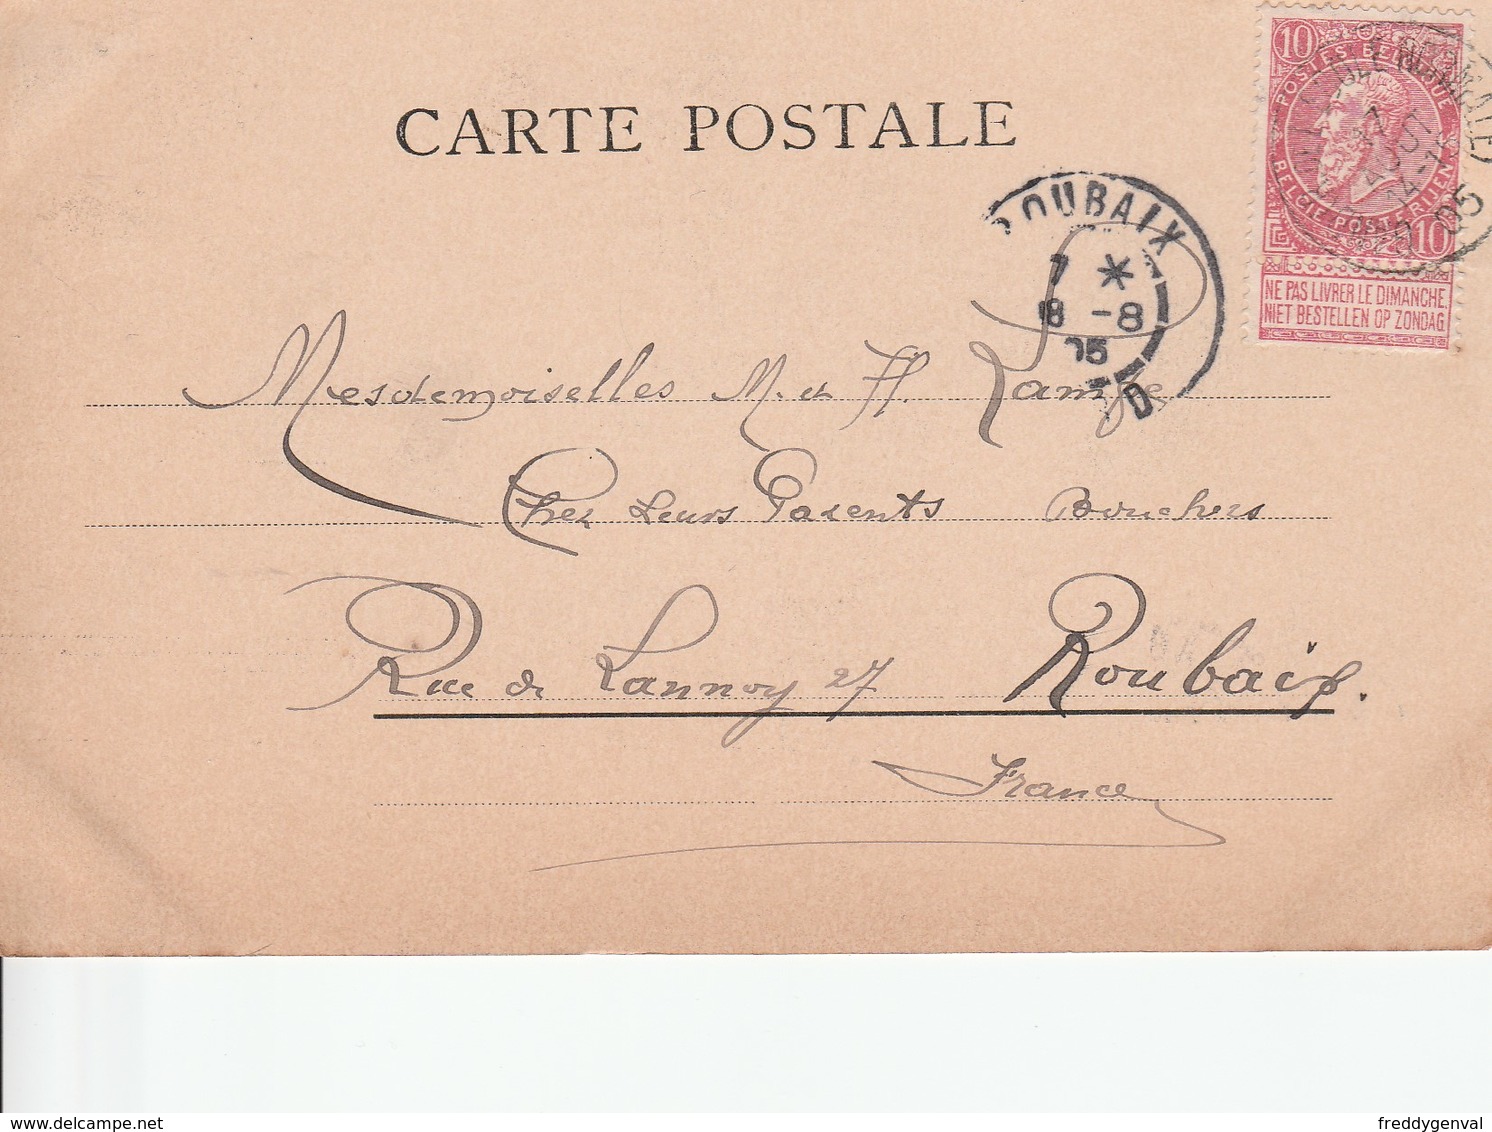 CARTE POSTALE
10 10
POSTES BELGIQUE
BELGIE POSTERIJEN
10 10
NE PAS LIVRER LE DIMANCHE
NIET BESTELLEN OP ZONDAG
AOUT
05
ROUBAIX
7 *
18 -8
05
D
Mesdemoiselles M. et H.
Chez Leurs Parents Bouchers
Rue de Lannoy 27 Roubaix.
France
freddygenval